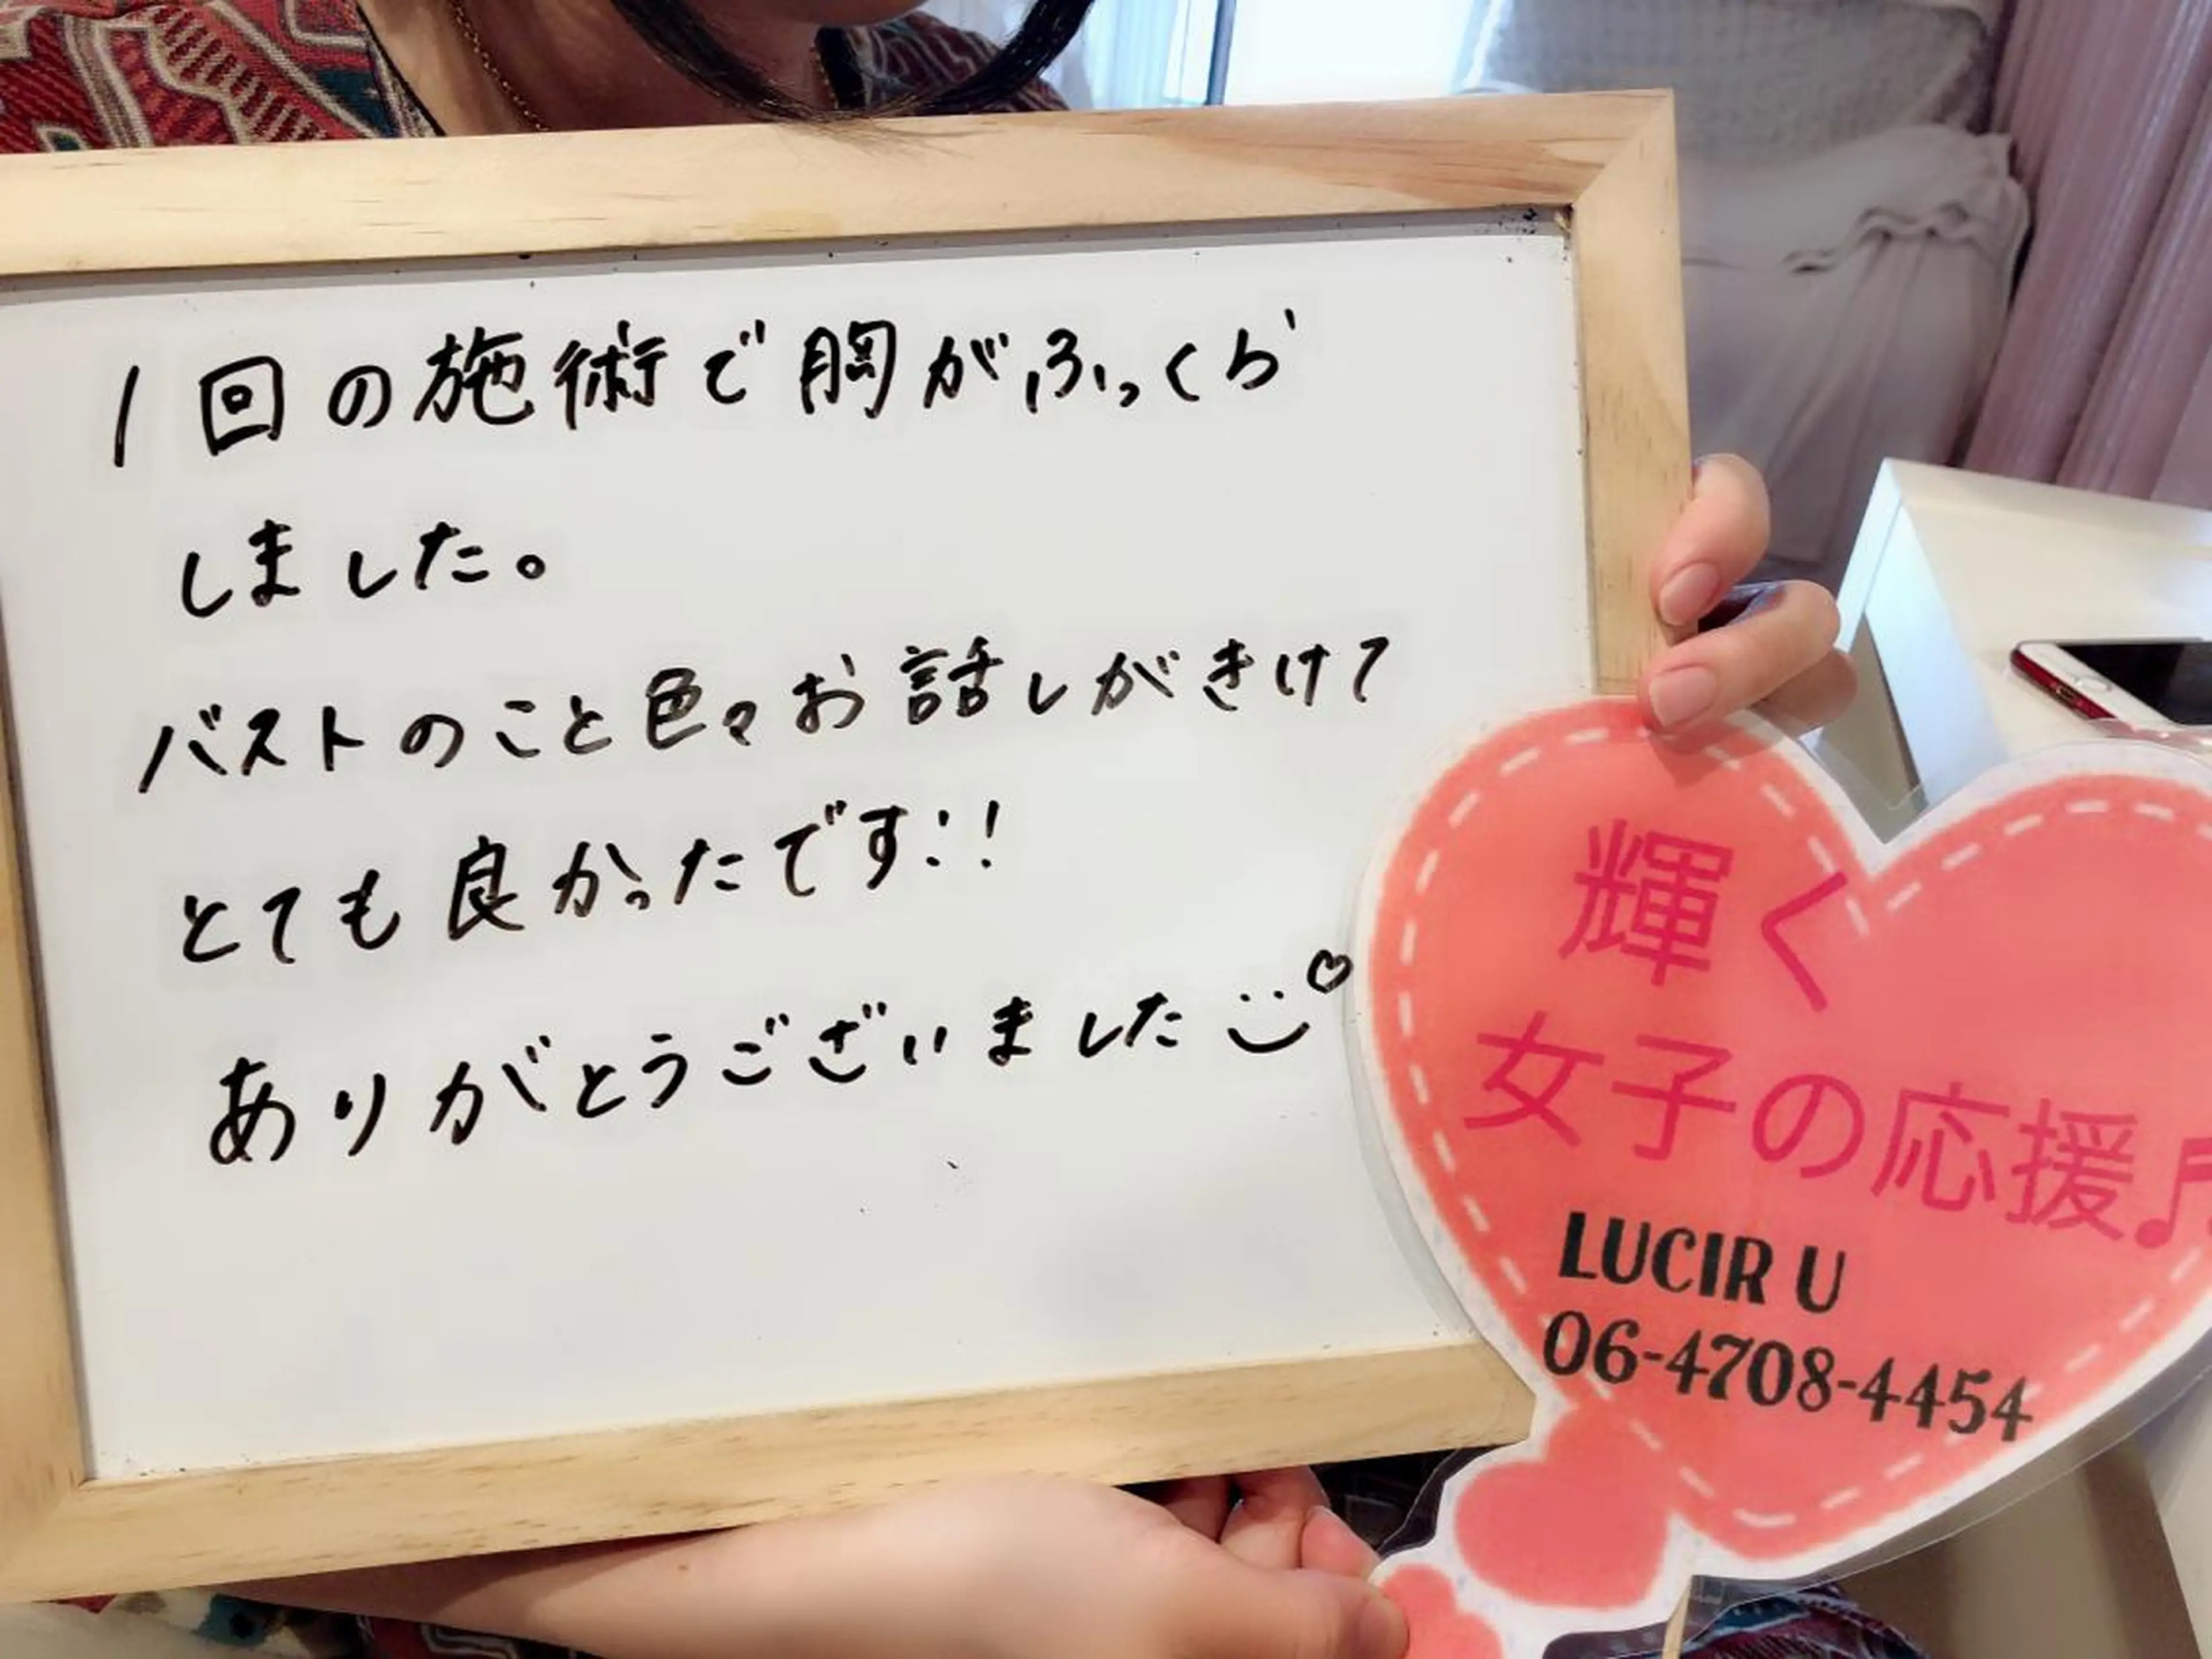 1回の施術で胸がふっくら
しました。
バストのこと色々お話しがきけて
とても良かったです!!
ありがとうございました
輝く
女子の応援♬
LUCIR U
06-4708-4454